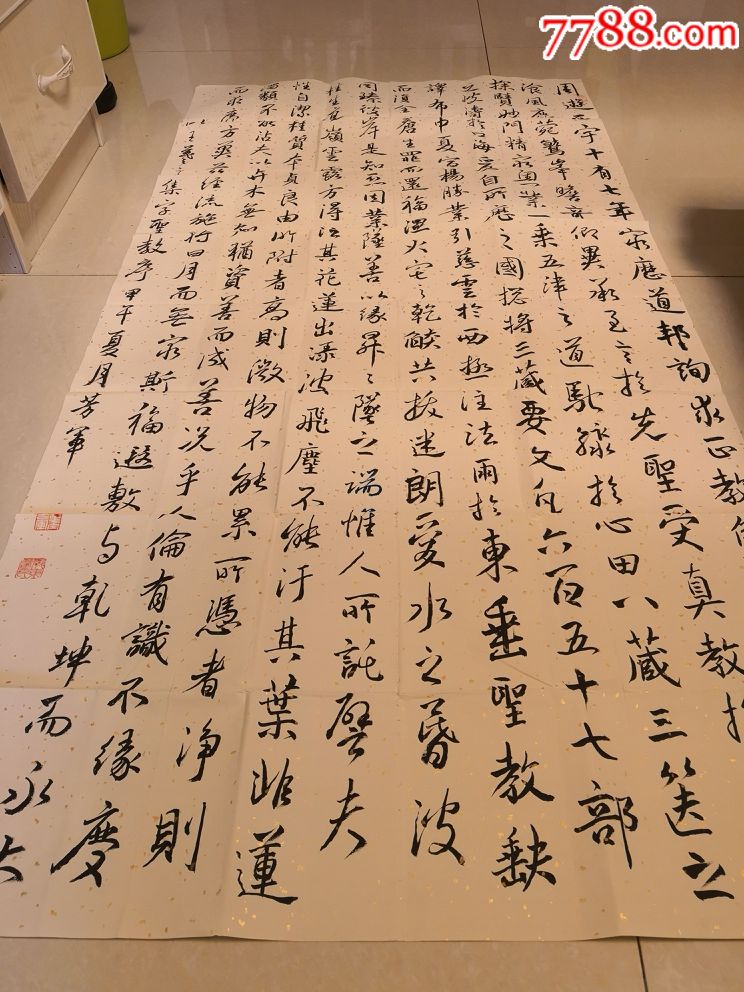 7788.com
周遊西宇十有七年窮歷道邦詢求正教
飡風鹿菀鷲峯瞻奇仰異承至言於先聖受真教於
探賢妙門精窮奧業一乘五津之道馳緣於心田八藏三篋之
文波濤於口海爰自所歷之國揔將三藏要文凡六百五十七部
譯布中夏宣楊勝業引慈雲於西極注法爾於東垂聖教缺
而復全蒼生罪而還福濕火宅之乾燄共拔迷朗愛水之昏波
同臻彼岸是知惡因業墜善以緣昇昇墜之端惟人所託譬夫
桂生高嶺雲露方得泫其花蓮出淥波飛塵不能汙其葉非蓮
性自潔桂質本貞良由所附者高則微物不能累所憑者淨則
濁類不能沾夫以卉木無知猶資善而成善況乎人倫有識不緣慶
而求慶方冀茲經流施將日月而無窮斯福遐敷與乾坤而永大
王羲之集字聖教序甲午夏月芳軍